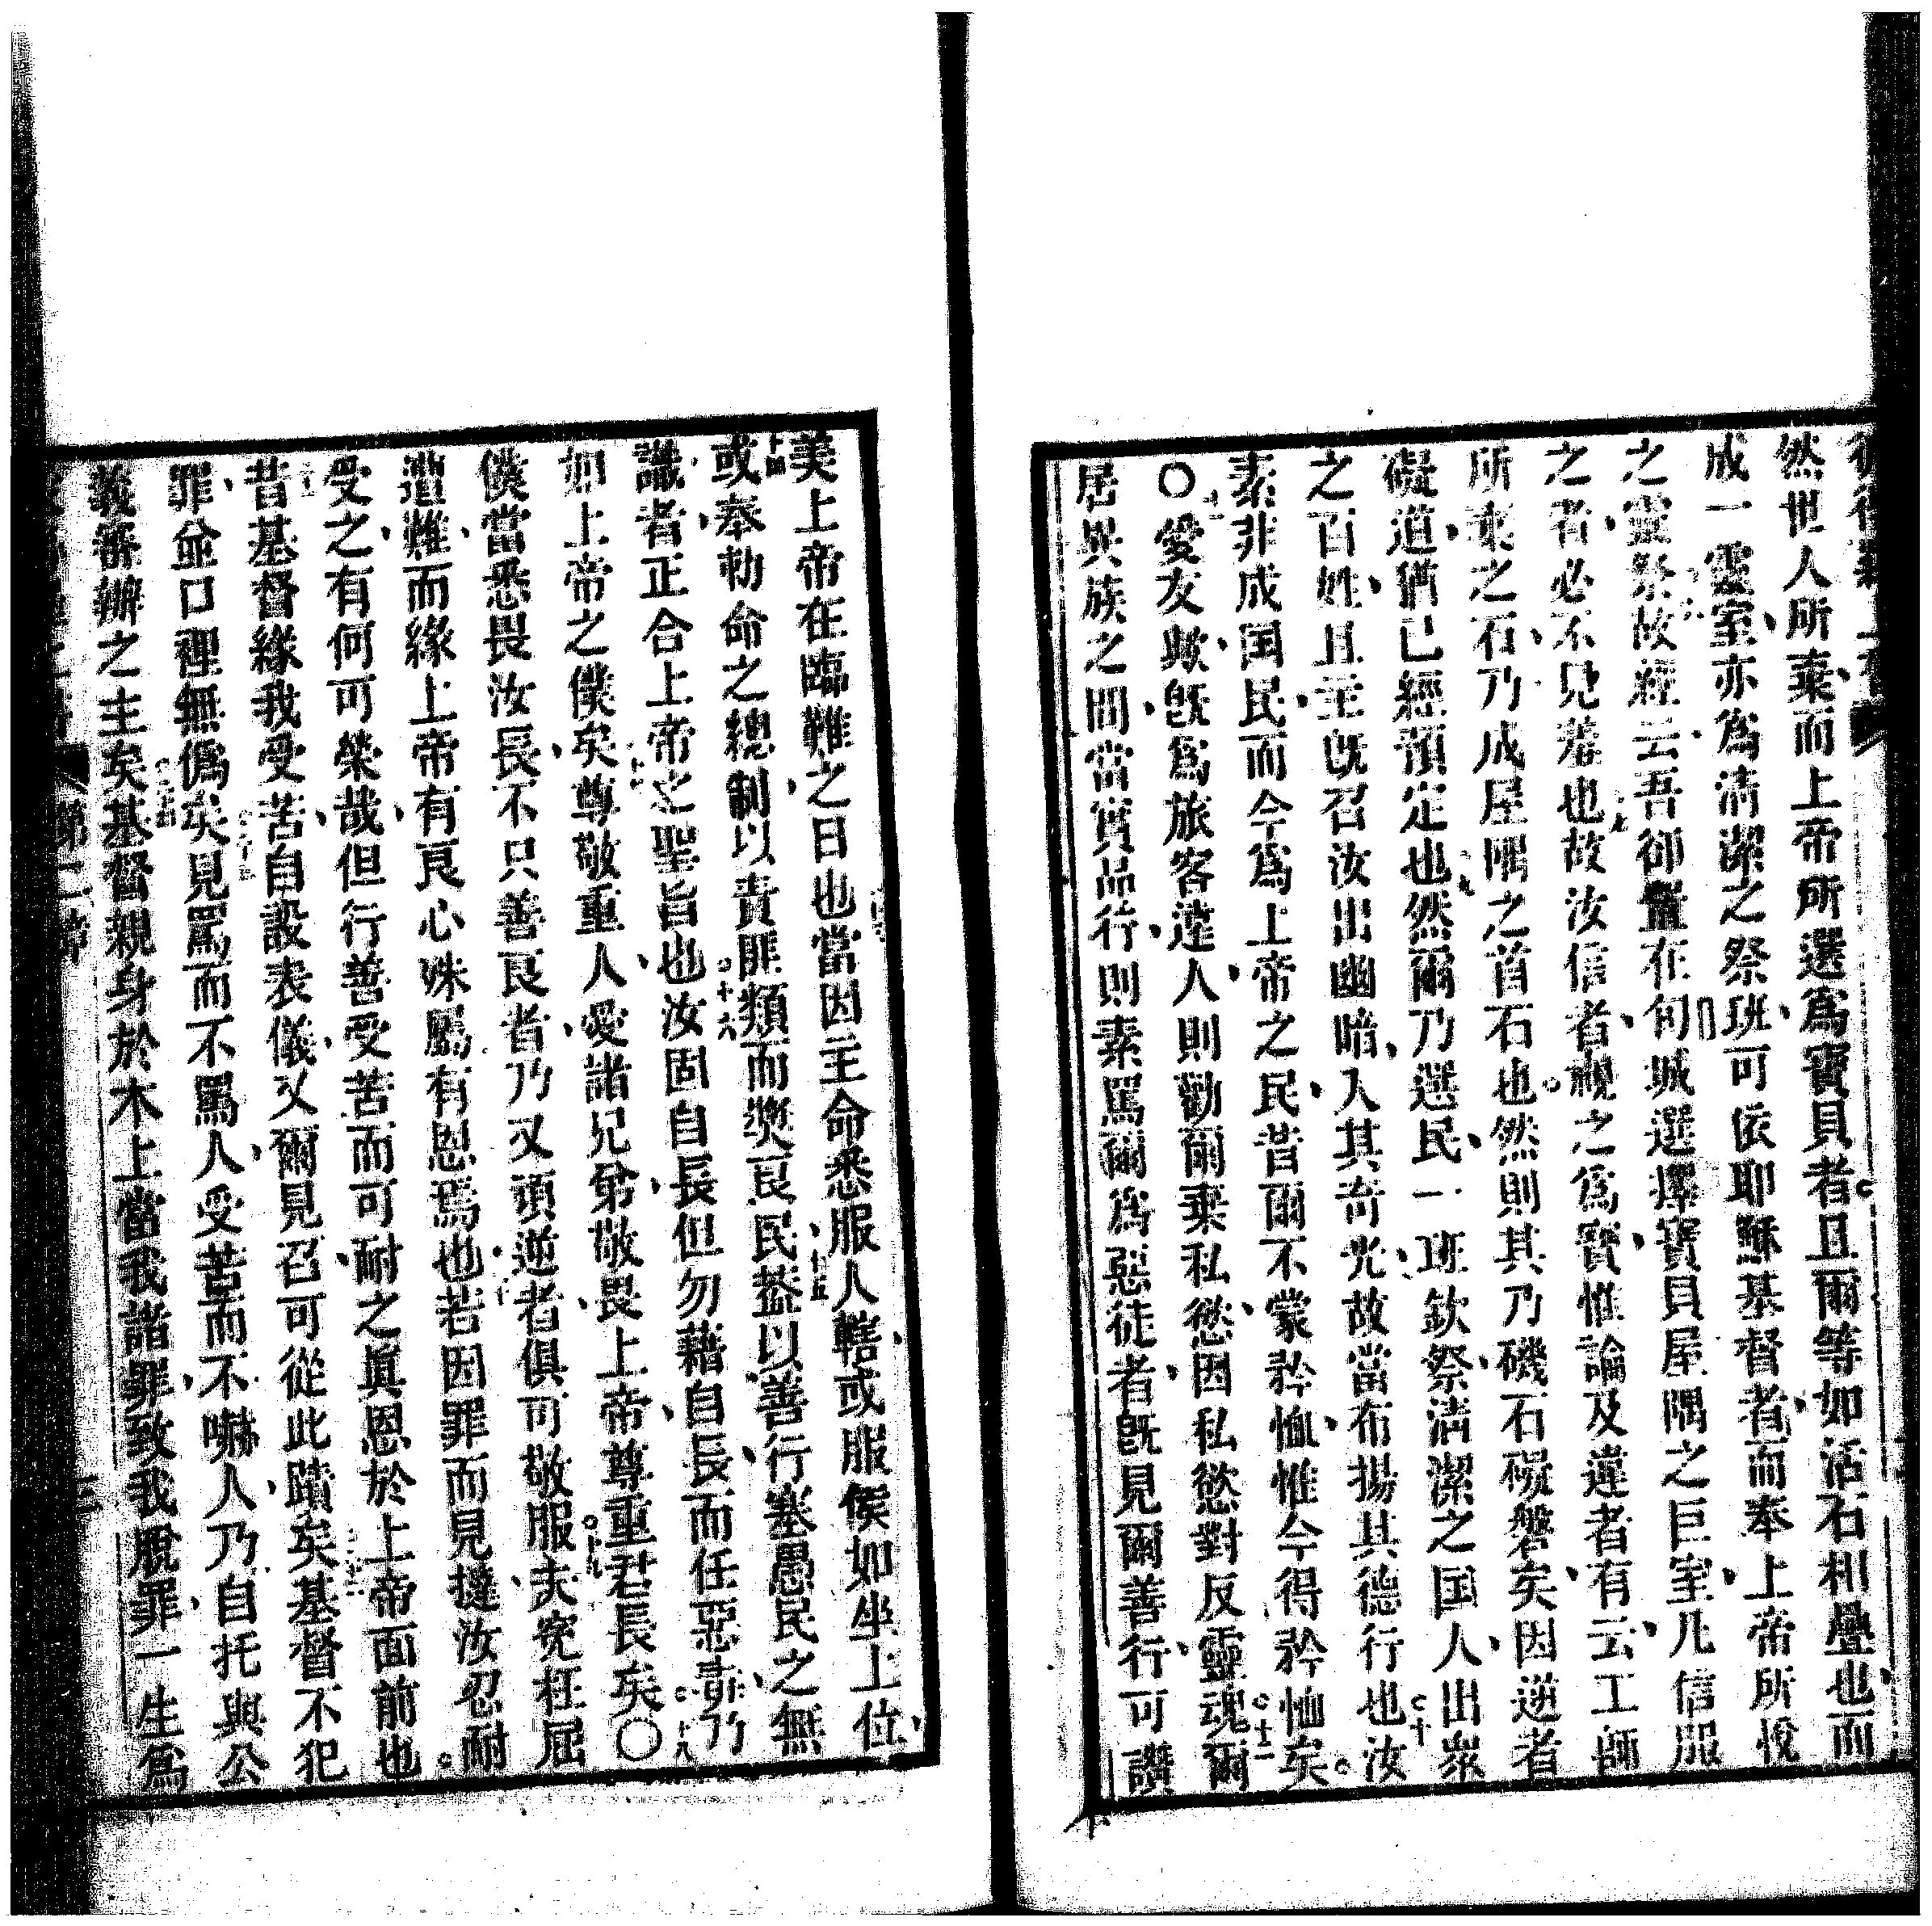 然世人所棄而上帝所選爲寶貝者且爾等如活石相疊也而
成一靈室亦爲清潔之祭班可依耶穌基督者而奉上帝所悅
之靈祭故經云吾卻置在旬城選擇寶貝屋隅之巨室凡信服
之者必不見羞也故汝信者視之爲寶惟論及違者有云工師
所棄之石乃成屋隅之首石也然則其乃磯石礙磐矣因逆者
礙道猶已經預定也然爾乃選民一班欽祭清潔之国人出衆
之百姓且主旣召汝出幽暗入其奇光故當布揚其德行也汝
素非成国民而今爲上帝之民昔爾不蒙矜恤惟今得矜恤矣
〇愛友歟旣爲旅客遠人則勸爾棄私慾因私慾對反靈魂爾
居異族之間當實品行則素罵爾爲惡徒者旣見爾善行可讚
美上帝在臨難之日也當因主命悉服人轄或服侯如坐上位
或奉勅命之總制以責罪類而獎良民葢以善行塞愚民之無
識者正合上帝之聖旨也汝固自長但勿藉自長而任惡責乃
如上帝之僕矣尊敬重人愛諸兄弟敬畏上帝尊重君長矣〇
僕當悉畏汝長不只善良者乃又頑逆者俱可敬服夫寃枉屈
遭難而緣上帝有良心殊屬有恩焉也若因罪而見撻汝忍耐
受之有何可榮哉但行善受苦而可耐之眞恩於上帝面前也
昔基督緣我受苦自設表儀又爾見召可從此蹟矣基督不犯
罪並口裡無僞矣見罵而不罵人受苦而不嚇人乃自托與公
義審辦之主矣基督親身於木上當我諸罪致我脫罪一生爲